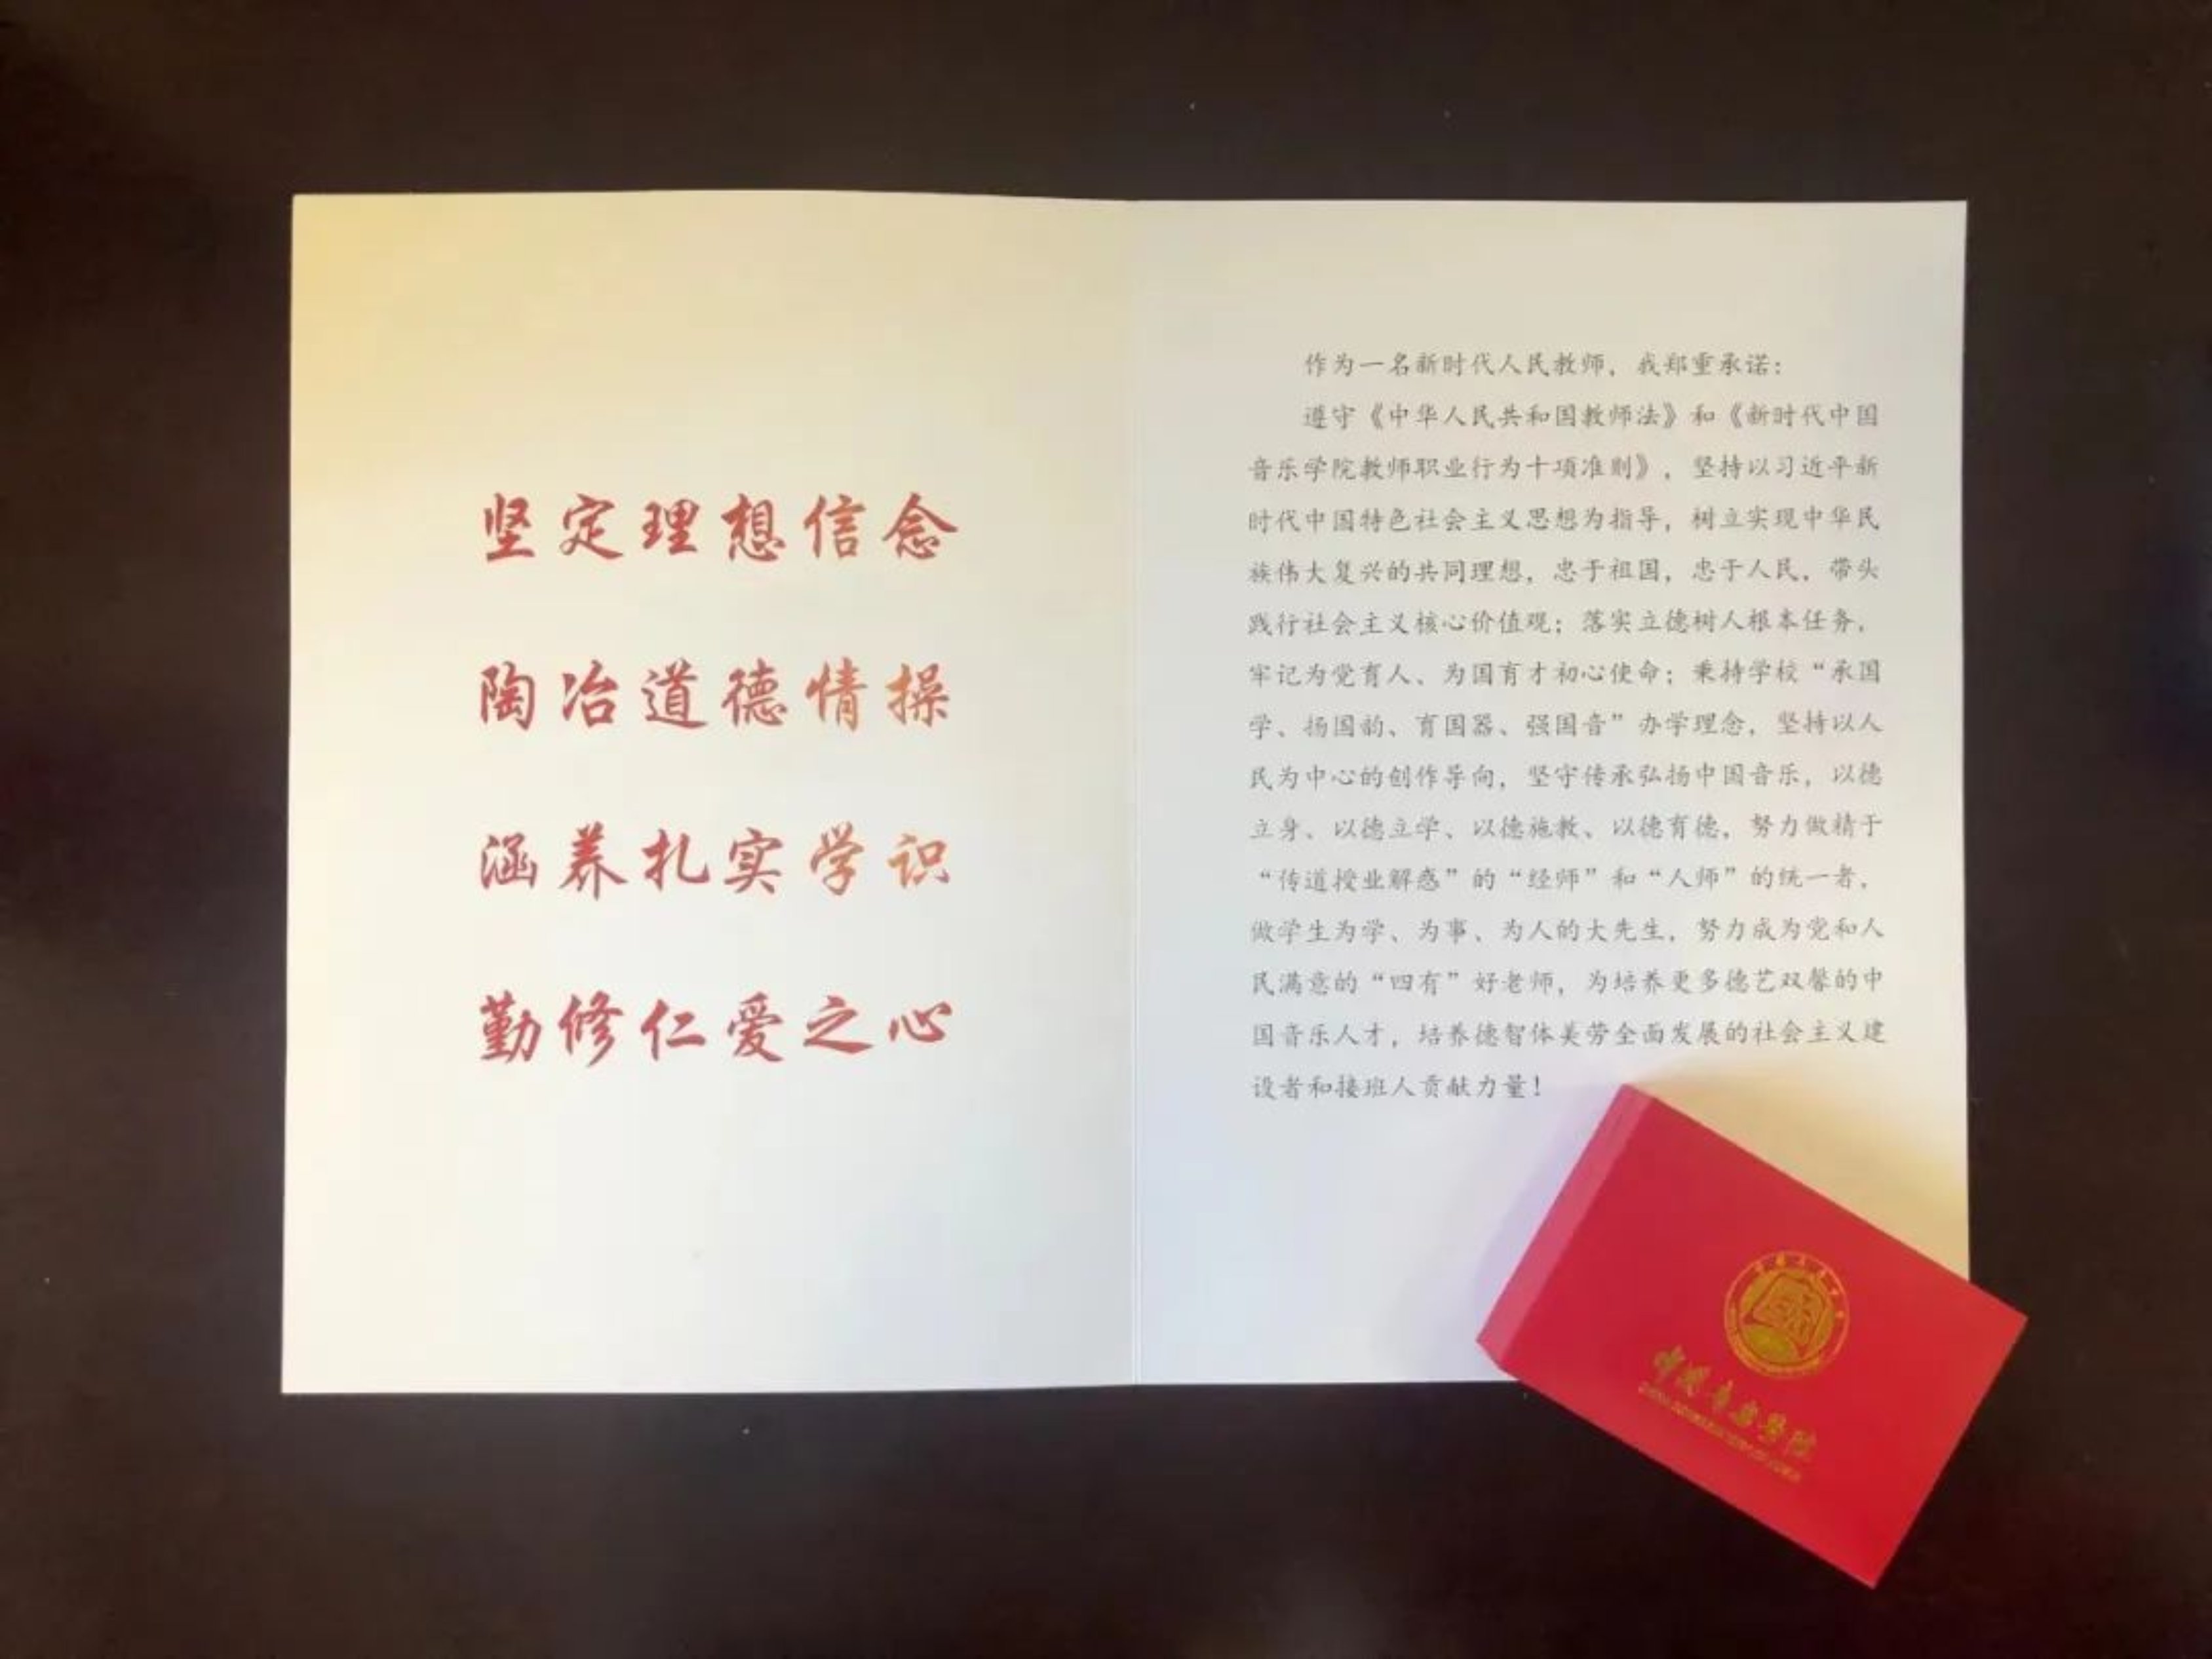 坚定理想信念
陶冶道德情操
涵养扎实学识
勤修仁爱之心
作为一名新时代人民教师，我郑重承诺：
遵守《中华人民共和国教师法》和《新时代中国
音乐学院教师职业行为十项准则》，坚持以习近平新
时代中国特色社会主义思想为指导，树立实现中华民
族伟大复兴的共同理想，忠于祖国，忠于人民，带头
践行社会主义核心价值观；落实立德树人根本任务，
牢记为党育人、为国育才初心使命；秉持学校“承国
学、扬国韵、育国器、强国音”办学理念，坚持以人
民为中心的创作导向，坚守传承弘扬中国音乐，以德
立身、以德立学、以德施教、以德育德，努力做精于
“传道授业解惑”的“经师”和“人师”的统一者，
做学生为学、为事、为人的大先生，努力成为党和人
民满意的“四有”好老师，为培养更多德艺双馨的中
国音乐人才，培养德智体美劳全面发展的社会主义建
设者和接班人贡献力量！
中国音乐学院
CHINA CONSERVATORY OF MUSIC